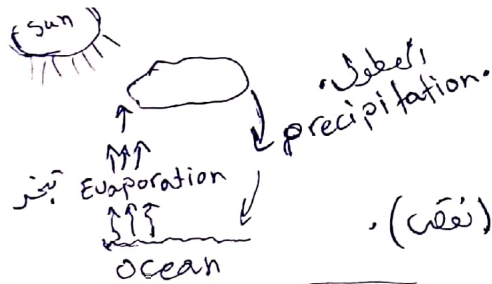 Sun
الهطول.
precipitation.
تبخر Evaporation
Ocean